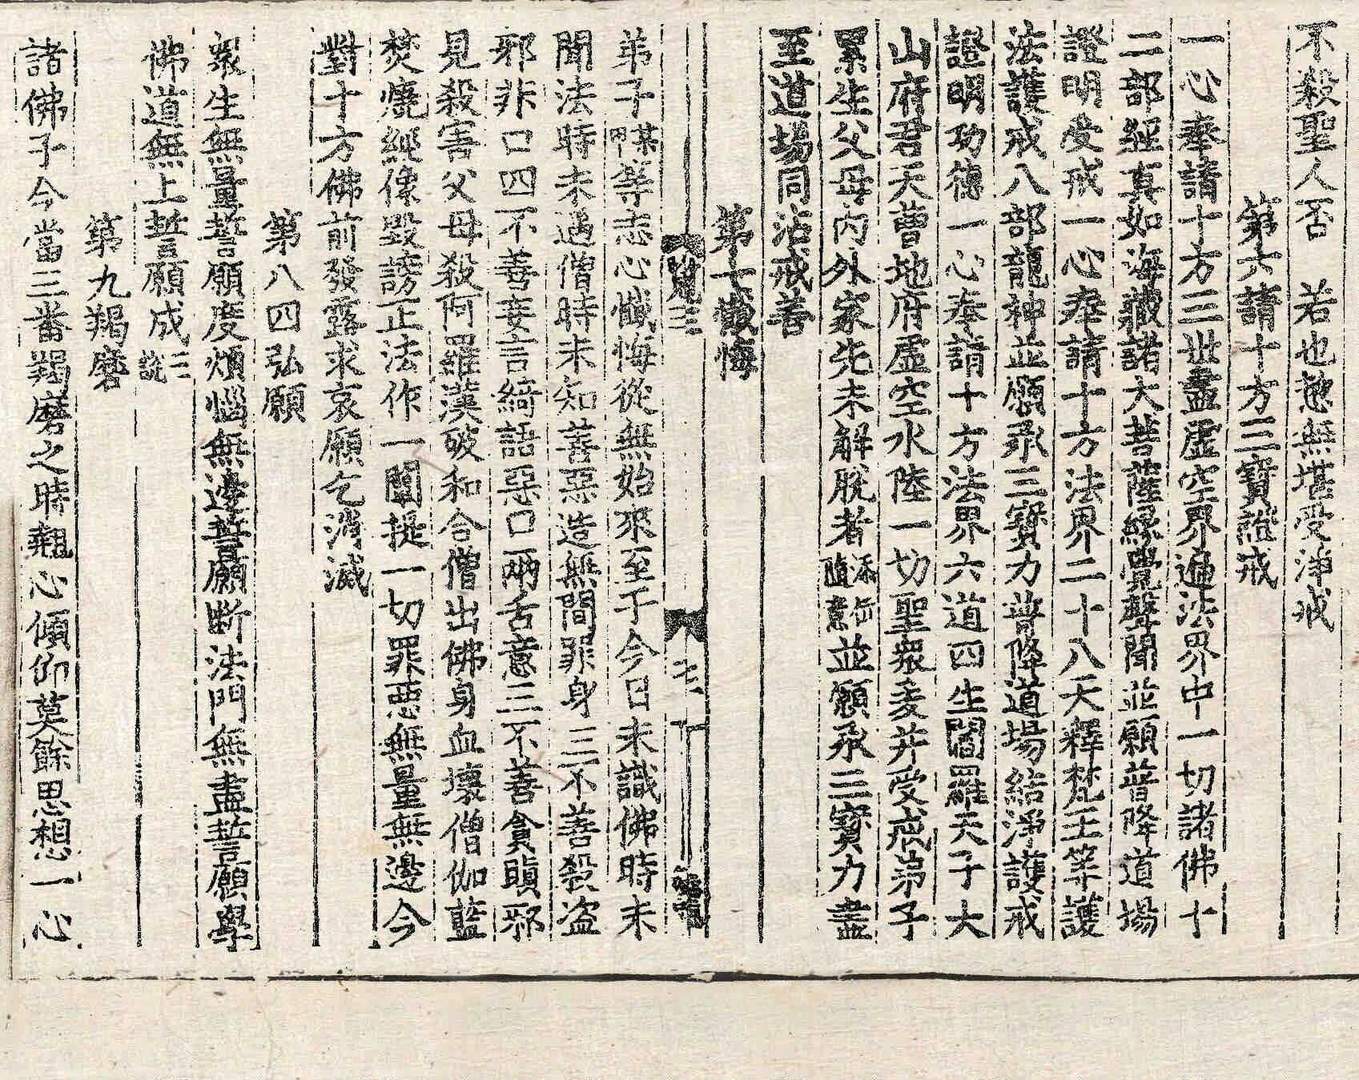 不殺聖人否 若也愆無堪受淨戒
第六請十方三寶證戒
一心奉請十方三世盡虛空界遍法界中一切諸佛十
二部經真如海藏諸大菩薩緣覺聲聞並願普降道場
證明受戒一心奉請十方法界二十八天釋梵王等護
法護戒八部龍神並願承三寶力普降道場結淨護戒
證明功德一心奉請十方法界六道四生閻羅天子大
山府君天曹地府虛空水陸一切聖衆并受戒弟子
累生父母內外家先未解脫者添缶隨意並願承三寶力盡
至道場同沾戒善
第七懺悔
弟子某甲等志心懺悔從無始來至于今日未識佛時未
聞法時未遇僧時未知善惡造無間罪身三不善殺盗
邪非口四不善妄言綺語惡口兩舌意三不善貪瞋邪
見殺害父母殺阿羅漢破和合僧出佛身血壞僧伽藍
焚燒經像毀謗正法作一闡提一切罪惡無量無邊今
對十方佛前發露求哀願乞消滅
第八四弘願
衆生無量誓願度煩惱無邊誓願断法門無盡誓願學
佛道無上誓願成三說
第九羯磨
諸佛子今當三番羯磨之時翹心傾仰莫餘思想一心